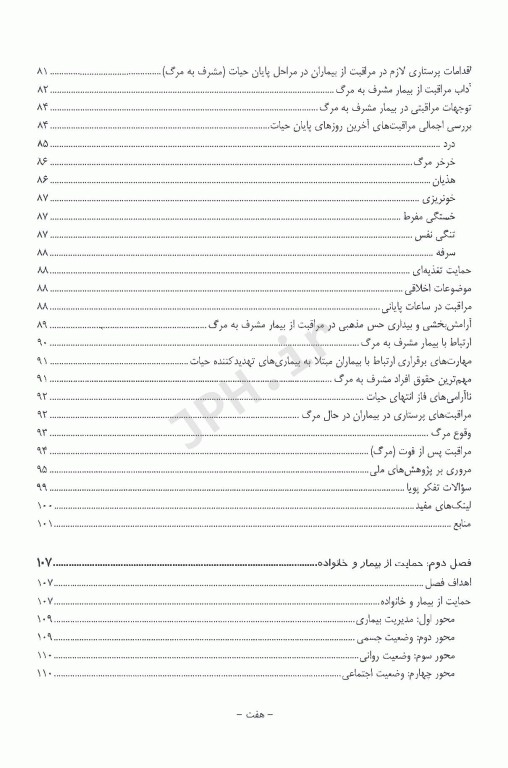 اقدامات پرستاری لازم در مراقبت از بیماران در مراحل پایان حیات (مشرف به مرگ) ........ ۸۱
آداب مراقبت از بیمار مشرف به مرگ ........ ۸۲
توجهات مراقبتی در بیمار مشرف به مرگ ........ ۸۴
بررسی اجمالی مراقبت‌های آخرین روزهای پایان حیات ........ ۸۴
درد ........ ۸۵
خرخر مرگ ........ ۸۶
هذیان ........ ۸۶
خونریزی ........ ۸۷
خستگی مفرط ........ ۸۷
تنگی نفس ........ ۸۷
سرفه ........ ۸۸
حمایت تغذیه‌ای ........ ۸۸
موضوعات اخلاقی ........ ۸۸
مراقبت در ساعات پایانی ........ ۸۸
آرامش‌بخشی و بیداری حس مذهبی در مراقبت از بیمار مشرف به مرگ ........ ۸۹
ارتباط با بیمار مشرف به مرگ ........ ۹۰
مهارت‌های برقراری ارتباط با بیماران مبتلا به بیماری‌های تهدیدکننده حیات ........ ۹۱
مهم‌ترین حقوق افراد مشرف به مرگ ........ ۹۱
ناآرامی‌های فاز انتهای حیات ........ ۹۲
مراقبت‌های پرستاری در بیماران در حال مرگ ........ ۹۲
وقوع مرگ ........ ۹۳
مراقبت پس از فوت (مرگ) ........ ۹۴
مروری بر پژوهش‌های ملی ........ ۹۵
سؤالات تفکر پویا ........ ۹۹
لینک‌های مفید ........ ۱۰۰
منابع ........ ۱۰۱
فصل دوم: حمایت از بیمار و خانواده ........ ۱۰۷
اهداف فصل ........ ۱۰۷
حمایت از بیمار و خانواده ........ ۱۰۷
محور اول: مدیریت بیماری ........ ۱۰۹
محور دوم: وضعیت جسمی ........ ۱۰۹
محور سوم: وضعیت روانی ........ ۱۱۰
محور چهارم: وضعیت اجتماعی ........ ۱۱۰
– هفت –
JPH.ir